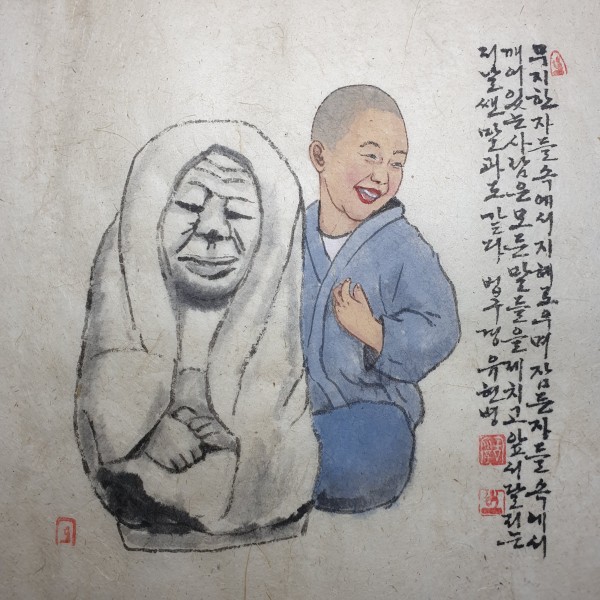 무지한 자들 속에서 지혜로우며 잠든 자들 속에서
깨어있는 사람은 모든 말들을 제치고 앞서 달리는
저 날쌘 말과도 같다 법구경 유현병